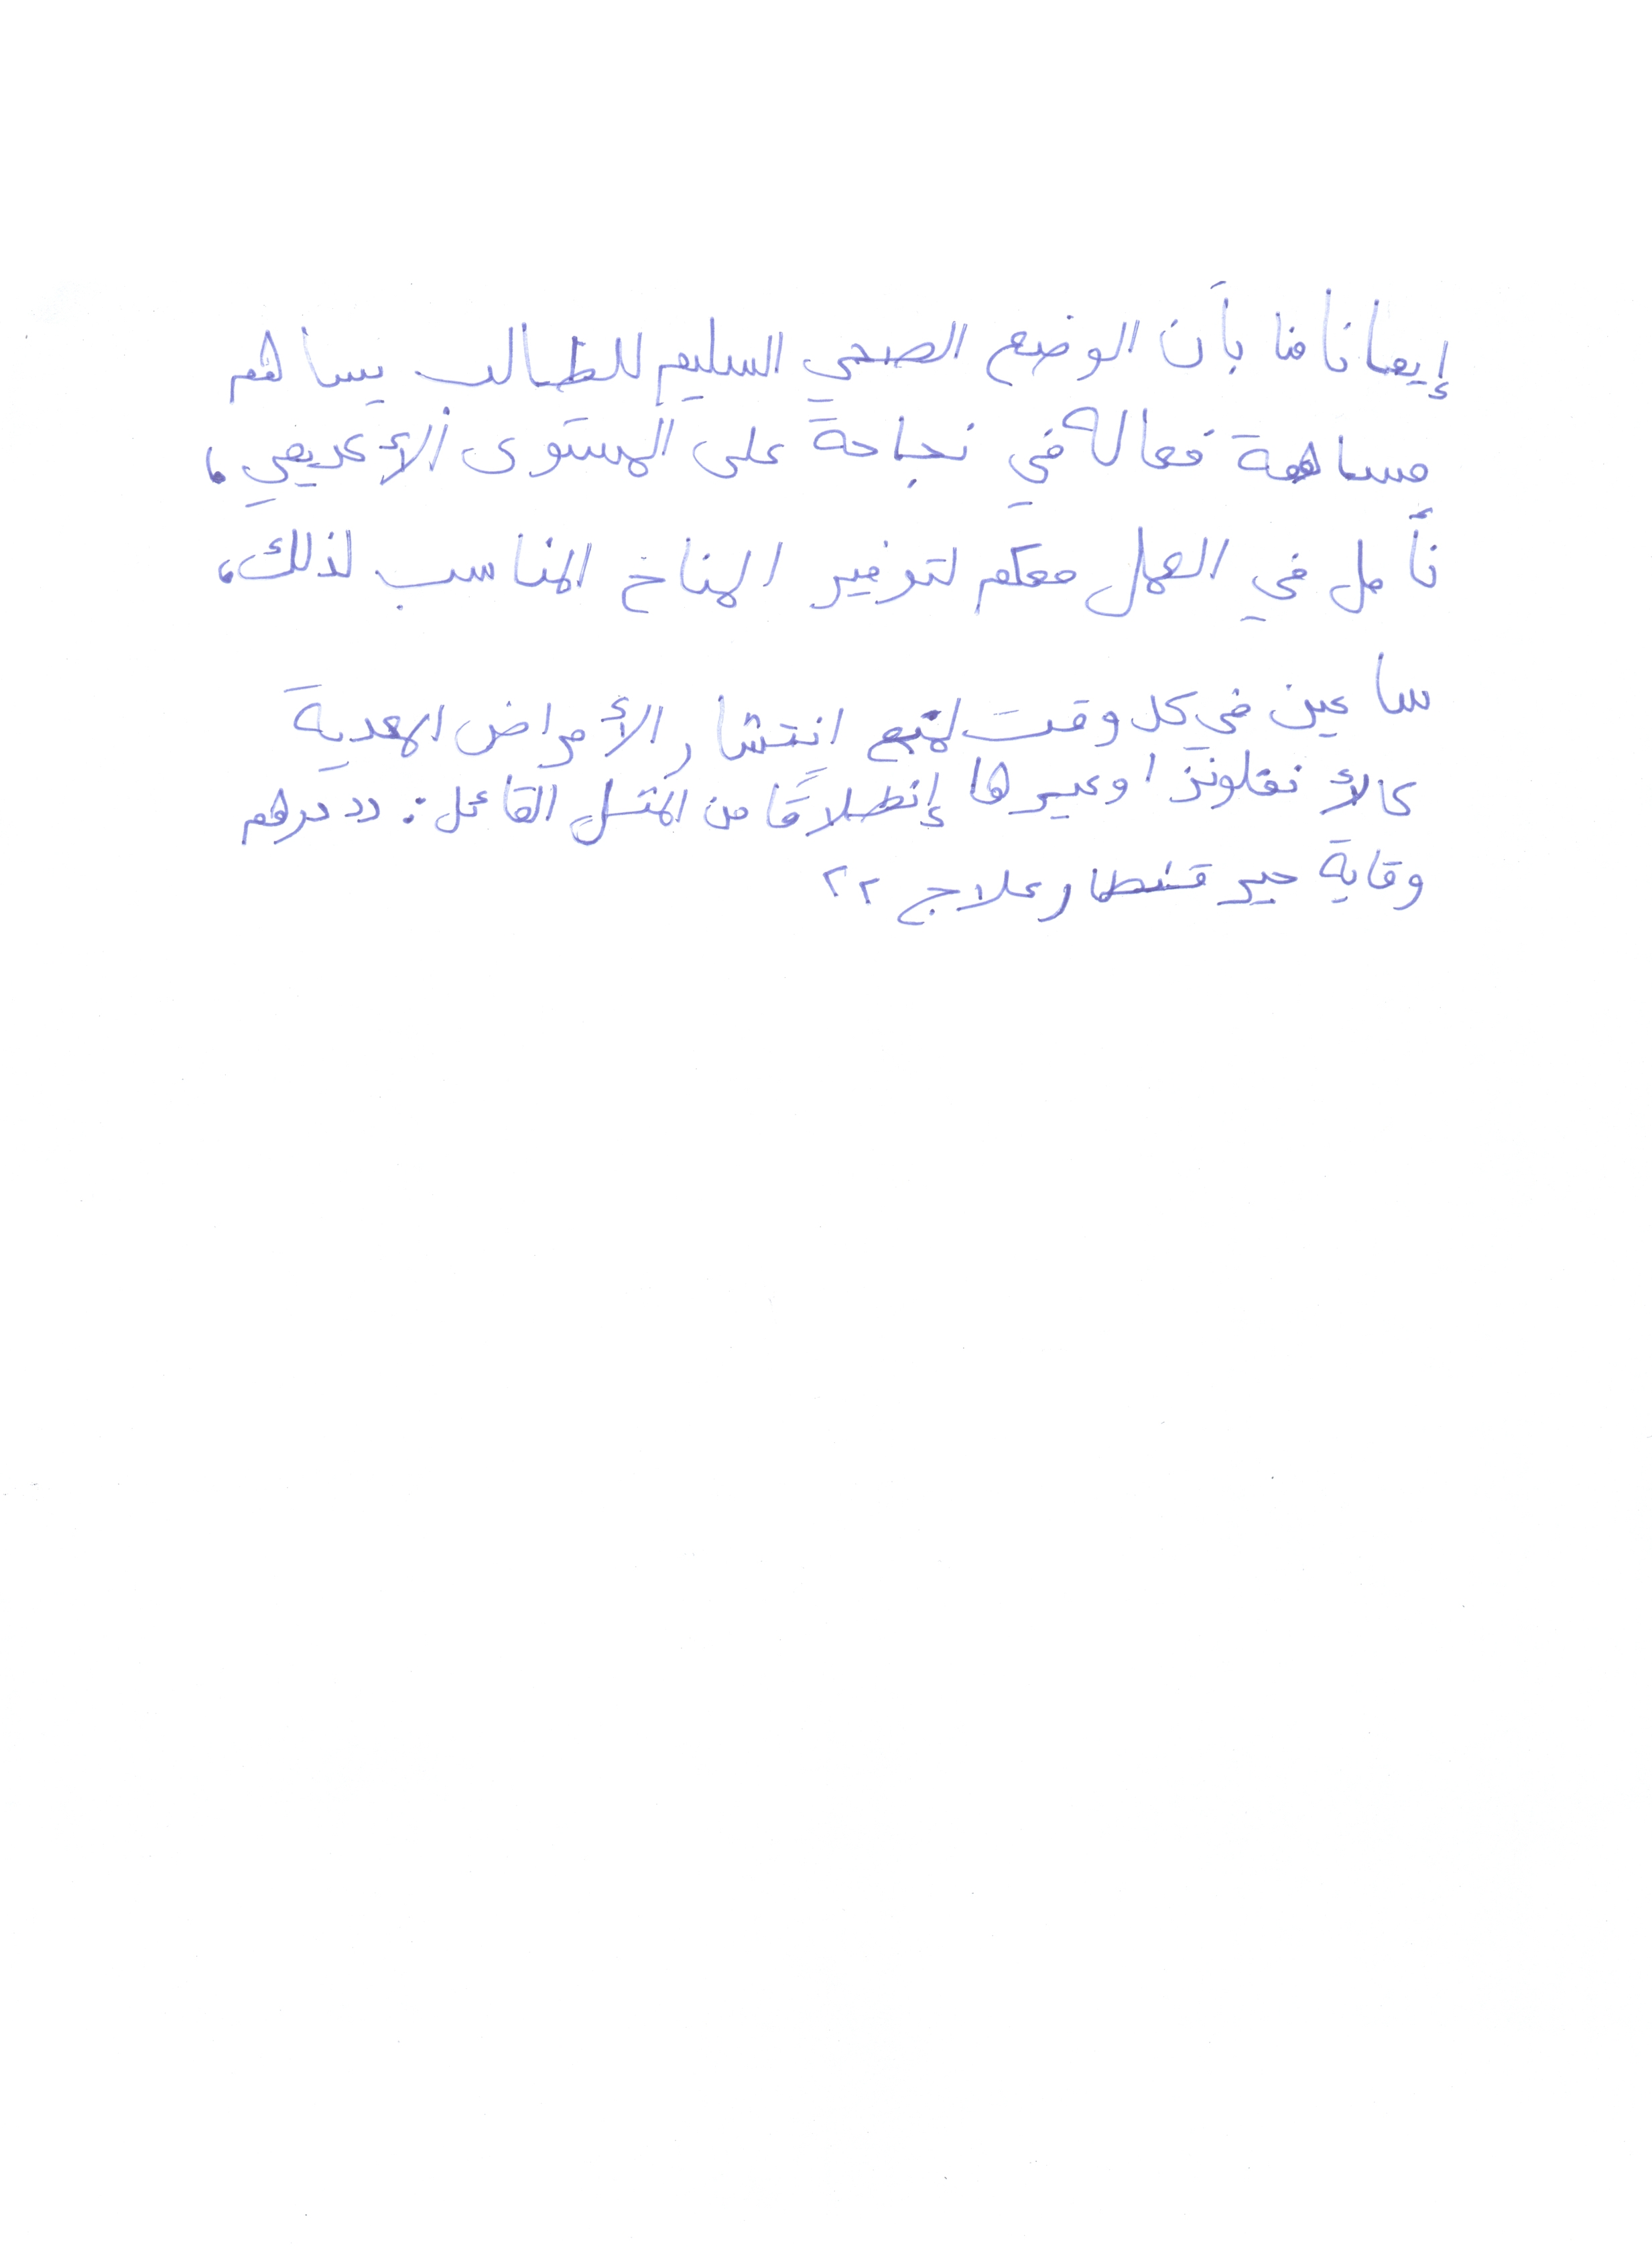 إيمانا منا بأن الوضع الصحي السليم للطالب يساهم
مساهمة فعالة في نجاحة على المستوى الأكاديمي،
نأمل في العمل معكم لتوفير المناخ المناسب لذلك،
ساعين في كل وقت لمنع انتشار الأمراض المعدية
كالأنفلونزا وغيرها إنطلاقًا من المثل القائل: "درهم
وقاية خير قنطار علاج"